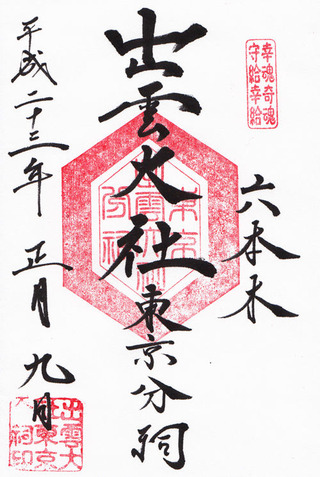 幸魂奇魂
守給幸給
六本木
出雲大社東京分祠
平成二十三年 正月 九日
出雲大
社東京
分祠印